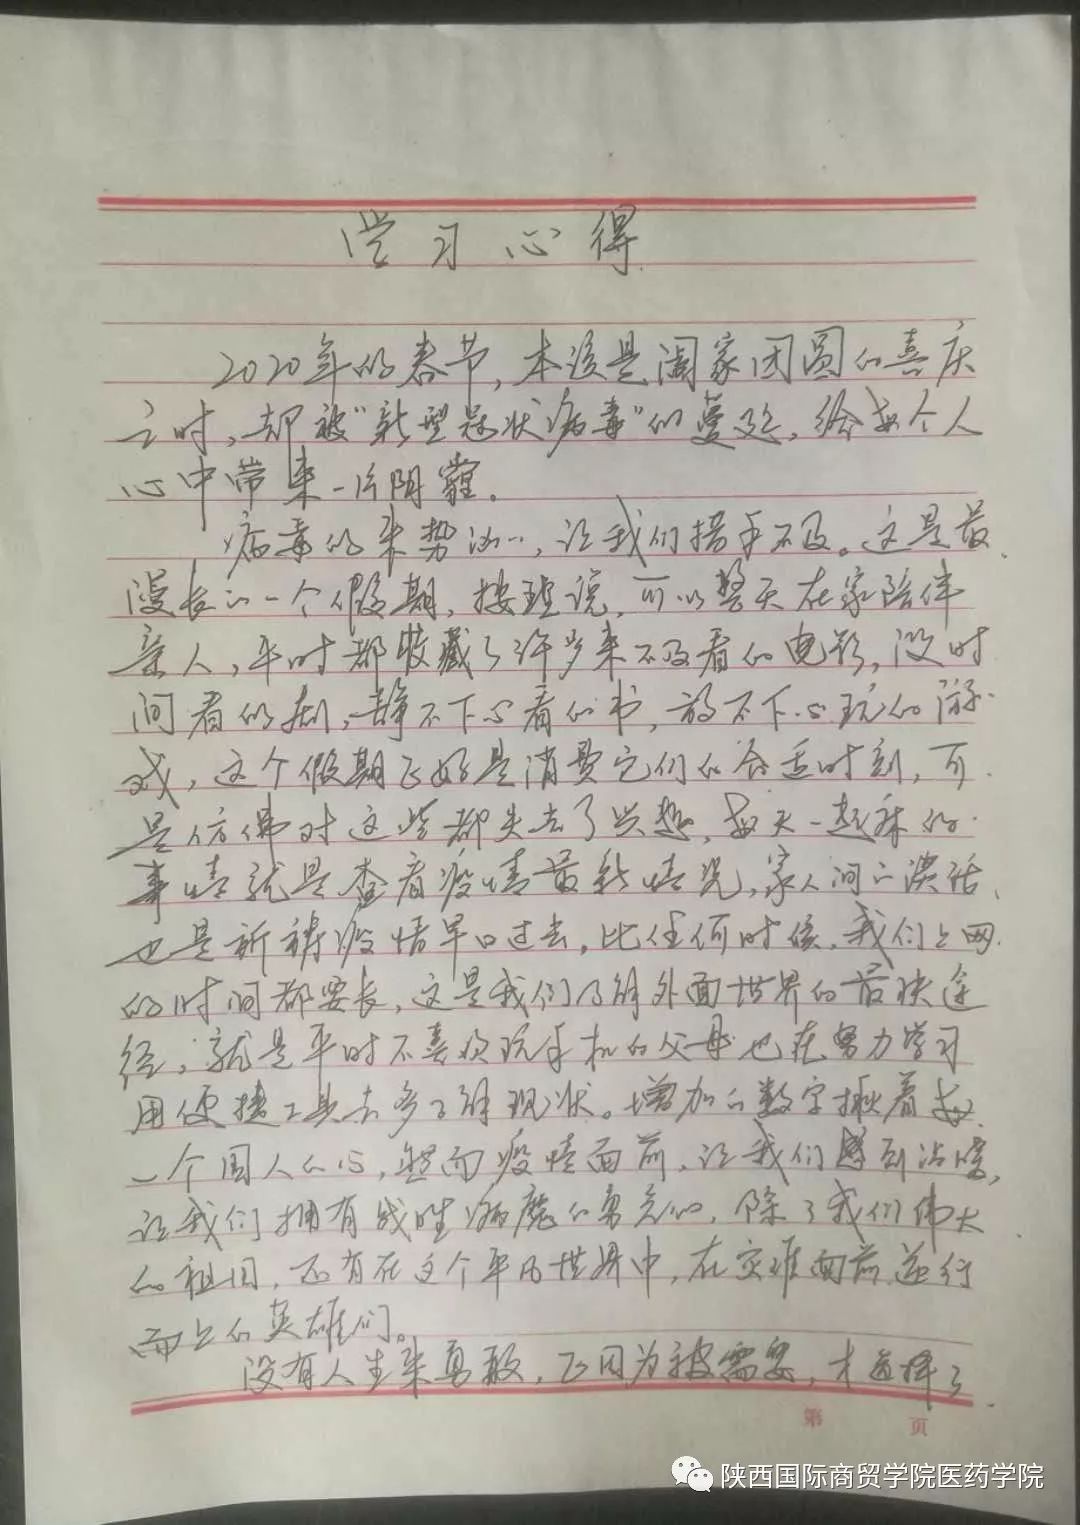 学习心得
2020年的春节，本该是阖家团圆的喜庆
之时，却被“新型冠状病毒”的蔓延，给每个人
心中带来一片阴霾.
病毒的来势汹汹，让我们措手不及。这是最
漫长的一个假期，按理说，可以整天在家陪伴
亲人，平时都收藏了许多来不及看的电影，没时
间看的剧，静不下心看的书，放不下心玩的游
戏，这个假期正好是消费它们的合适时刻，可
是仿佛对这些都失去了兴趣，每天一起床的
事情就是查看疫情最新情况，家人间的谈话
也是祈祷疫情早日过去，比任何时候，我们上网
的时间都要长，这是我们了解外面世界的最快途
径，就是平时不喜欢玩手机的父母也在努力学习
用便捷工具去多了解现状。增加的数字揪着每
一个国人的心，然而疫情面前，让我们感到温暖，
让我们拥有战胜病魔的勇气的，除了我们伟大
的祖国，还有在这个平凡世界中，在灾难面前逆行
而上的英雄们。
没有人生来勇敢，正因为被需要，才选择了
第 页
陕西国际商贸学院医药学院